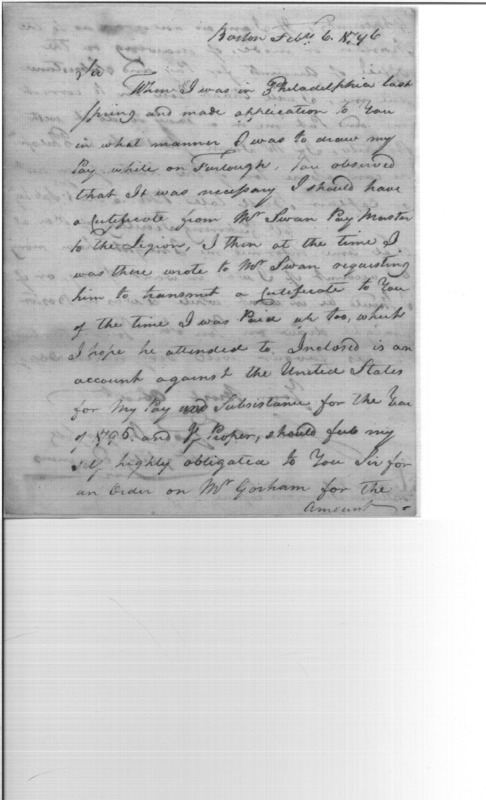 Boston Feby 6. 1796
Sir
When I was in Philadelphia last
Spring and made application to You
in what manner I was to draw my
Pay while on Furlough, You observed
that It was necessary I should have
a Certificate from Mr Swan Pay Master
to the Legion, I then at the time I
was there wrote to Mr Swan requisting
him to transmit a Certificate to You
of the time I was Paid up too, which
I hope he attended to. Inclosed is an
account against the United States
for My Pay and Subsistance for the Year
of 1795. and If Proper, should feel my
self highly obligated to You Sir for
an Order on Mr Gorham for the
Amount